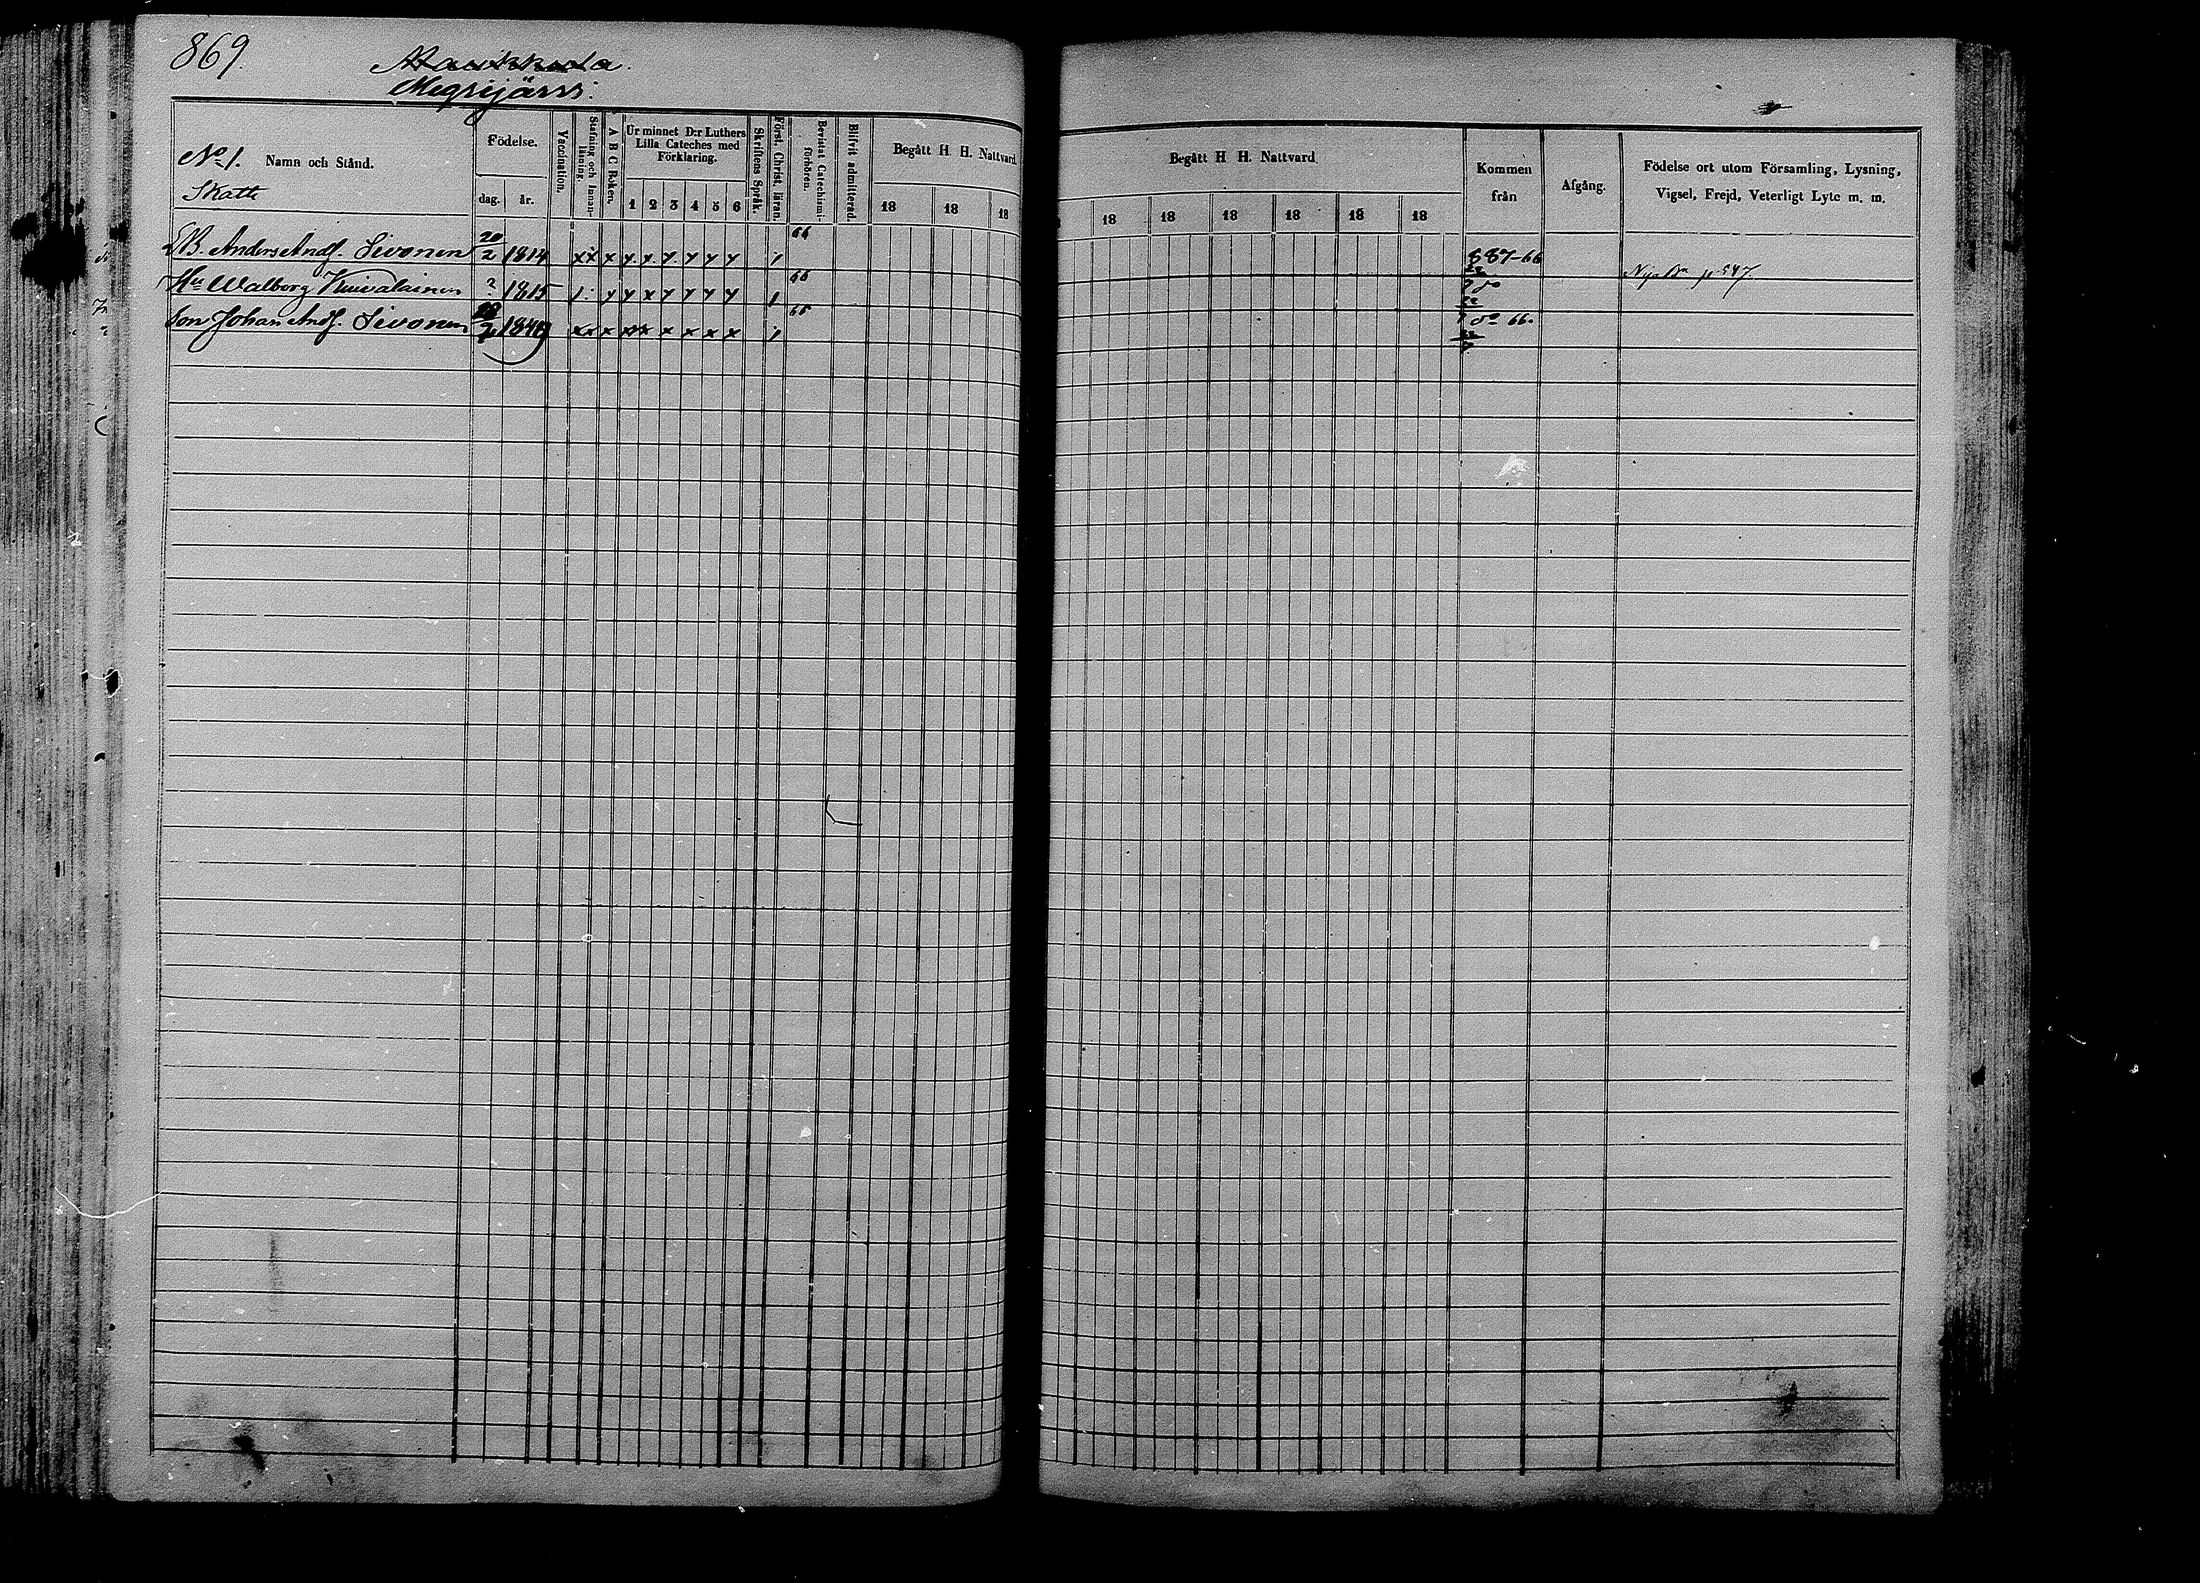 869.
Megrijärvi.
No 1. Namn och Stånd.
Skatte
Födelse.
dag. år.
Vaccination.
Stafning och Innan-läsning.
A B C Boken.
Ur minnet D:r Luthers Lilla Cateches med Förklaring.
1 2 3 4 5 6
Skriftens Språk.
Först. Christ. läran.
Bevistat Catechismi-förhören.
Blifvit admitterad.
Begått H. H. Nattvard.
18 18 18
Begått H H. Nattvard.
18 18 18 18 18 18
Kommen från
Afgång.
Födelse ort utom Församling, Lysning, Vigsel, Frejd, Veterligt Lyte m. m.
Anders Andf. Sivonen 20/2 1814 x x x y y y y y y 1 66 587-66
Hu Walborg Kuivalainen ? 1815 1 y y x y y y y 1 66 do Nya Bn p 547.
Son Johan Andf. Sivonen 1840 x x x x x x x x x 1 66 do 66.